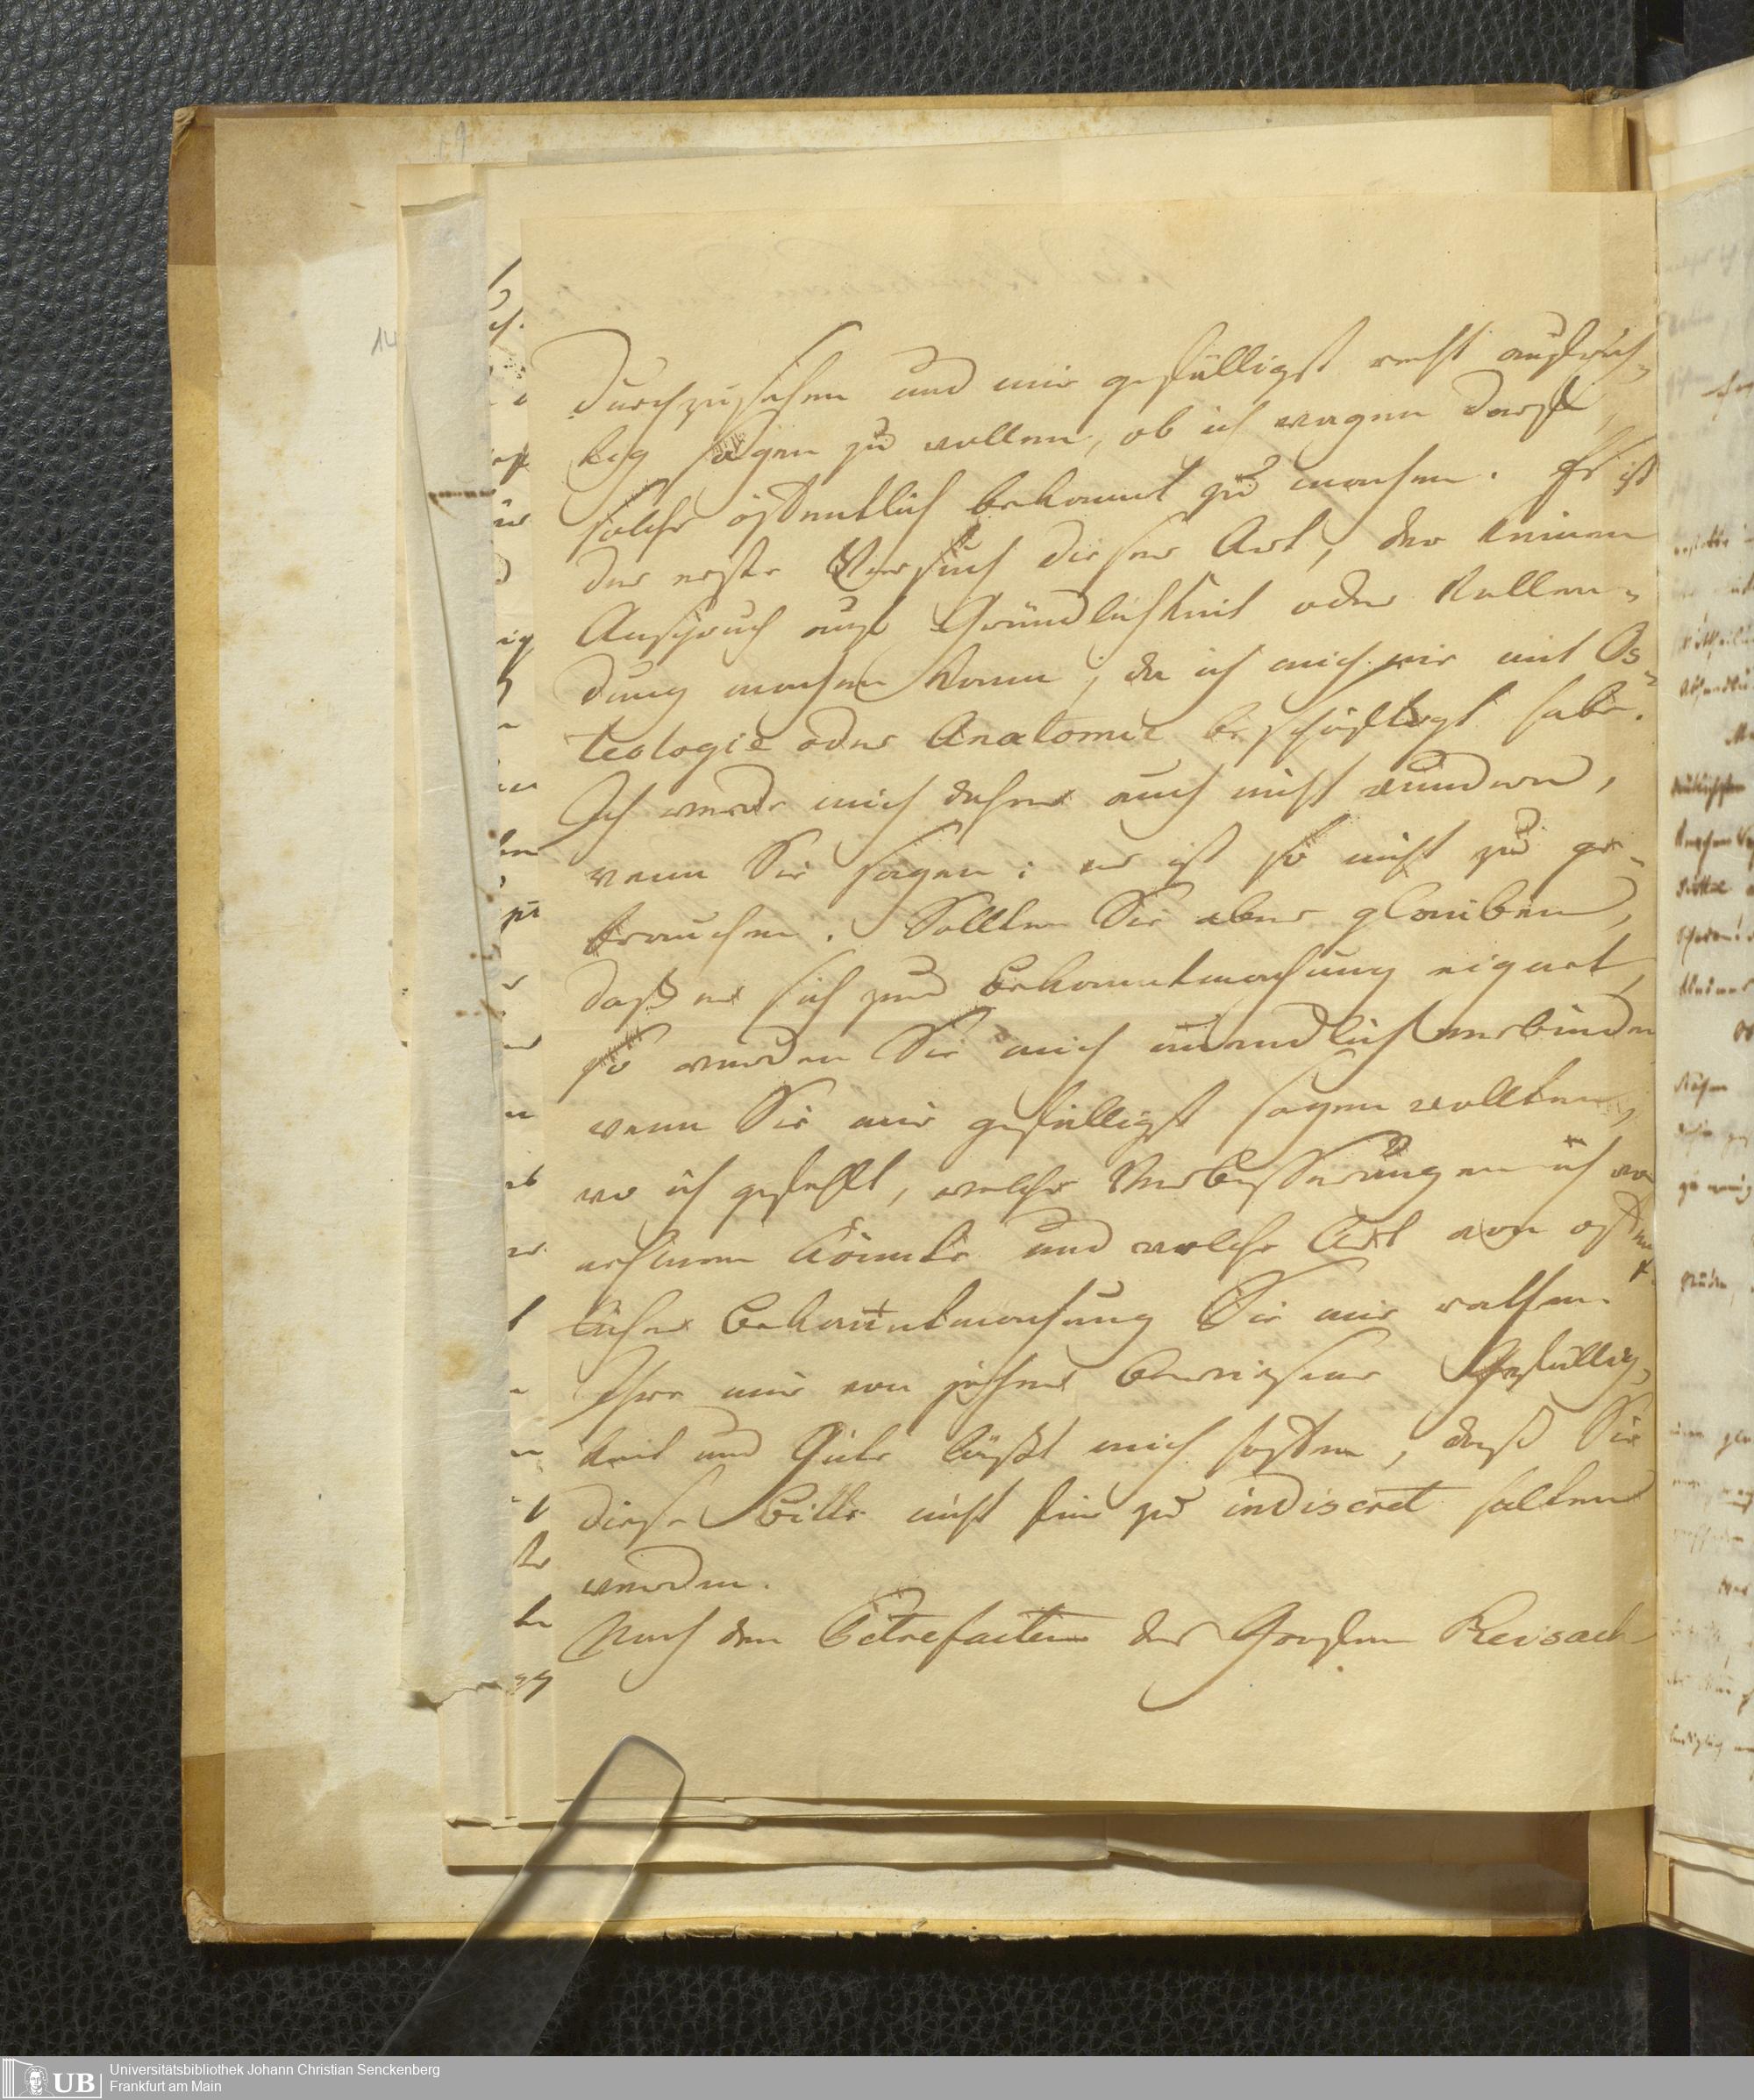 durchzusehen und mir gefälligst recht aufrich-
tig sagen zu wollen, ob ich wagen darf,
solche öffentlich bekannt zu machen. Es ist
der erste Versuch dieser Art, der keinen
Anspruch auf Gründlichkeit oder Vollen-
dung machen kann, da ich mich nie mit Os-
teologie oder Anatomie beschäftigt habe.
Ich werde mich daher auch nicht wundern,
wenn Sie sagen: er ist so nicht zu ge-
brauchen. Sollten Sie aber glauben,
daß er sich zur Bekanntmachung eignet,
so werden Sie mich unendlich verbinden
wenn Sie mir gefälligst sagen wollten,
wo ich gefehlt, welche Verbesserungen ich vor
nehmen könnte und welche Art von öffent
licher Bekanntmachung Sie mir rathen.
Ihre mir von jeher bewiesene Gefällig-
keit und Güte läßt mich hoffen, daß Sie
diese Bitte nicht für zu indiscret halten
werden.
Nach den Petrefacten des Grafen Reisach
UB
Universitätsbibliothek Johann Christian Senckenberg
Frankfurt am Main